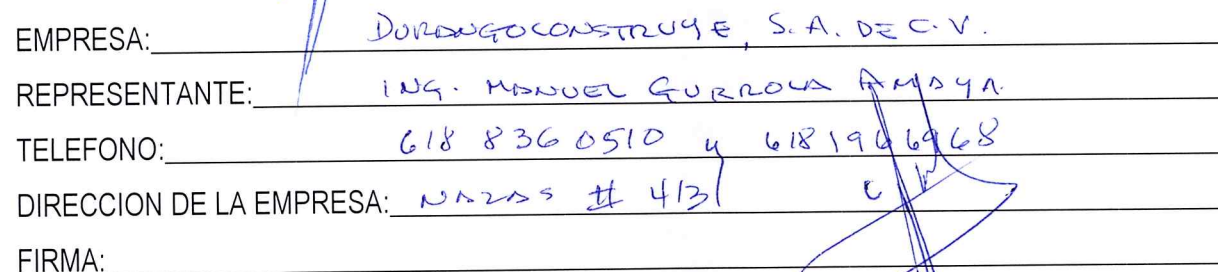 EMPRESA: DURANGOCONSTRUYE, S.A. DE C.V.
REPRESENTANTE: ING. MANUEL GURROLA AMAYA.
TELEFONO: 618 836 0510 y 618 196 6968
DIRECCION DE LA EMPRESA: NAZAS # 413
FIRMA: